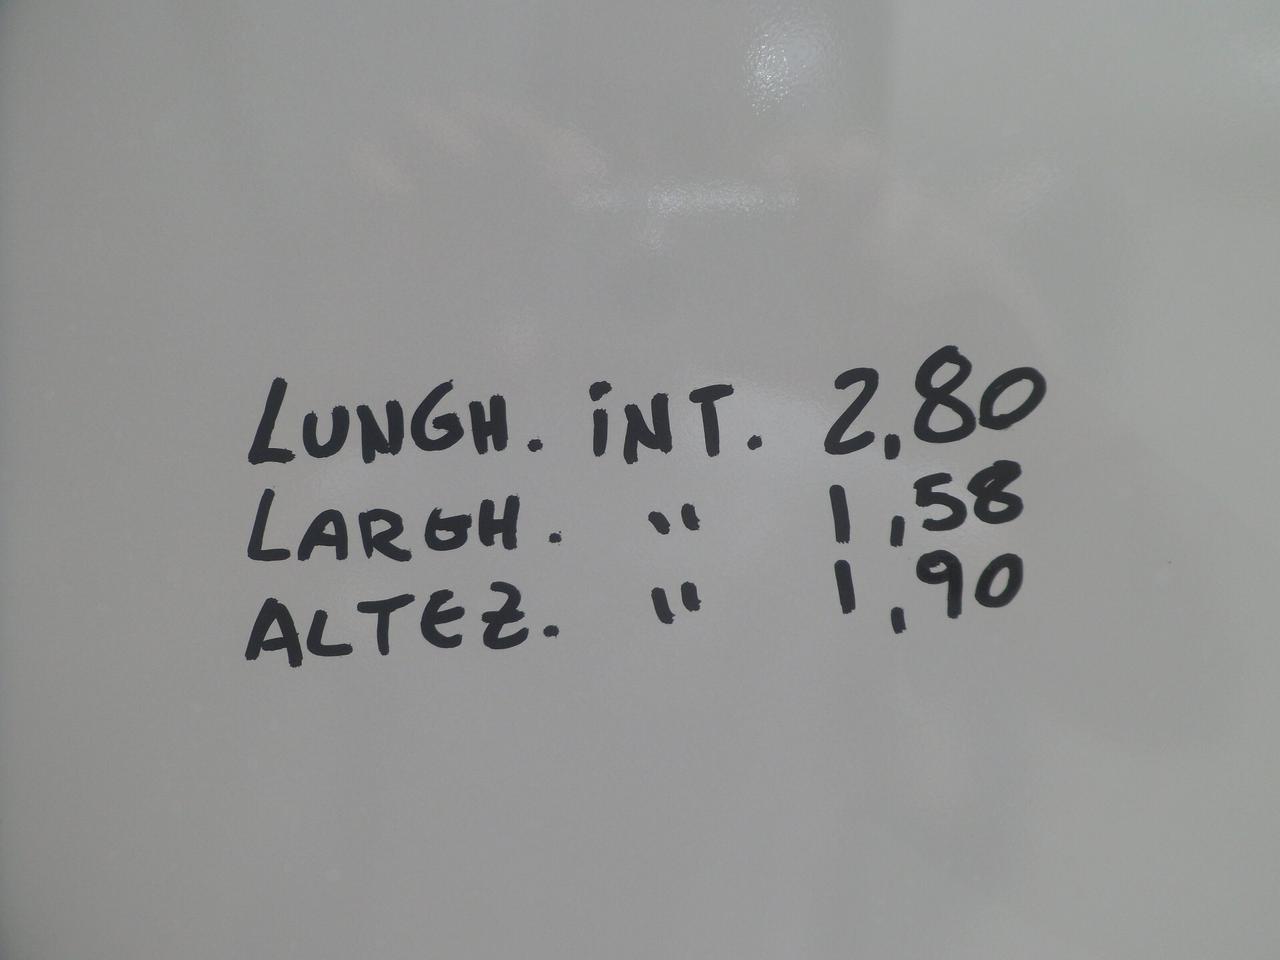 LUNGH. INT. 2,80
LARGH. " 1,58
ALTEZ. " 1,90